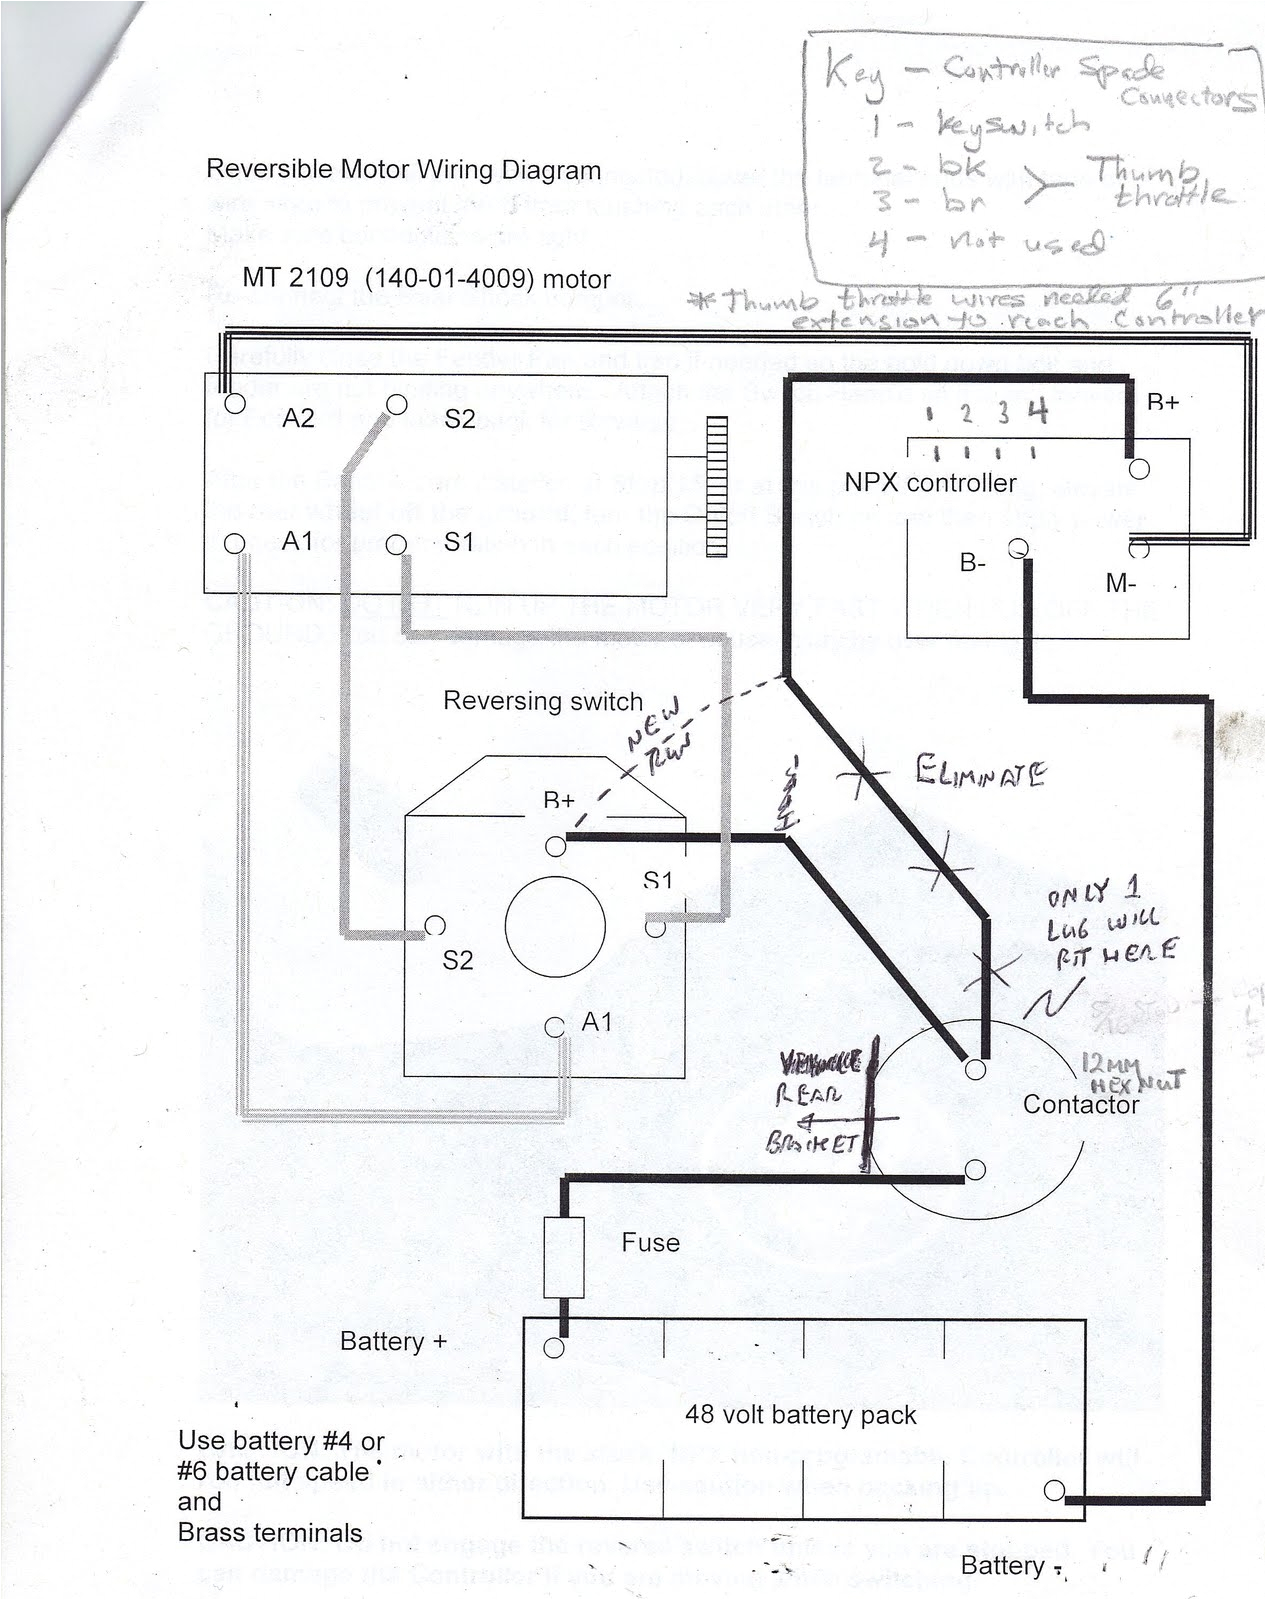 Key - Controller Spade
Connectors
1 - keyswitch
2 - bk
3 - br
Thumb
throttle
4 - not used
* Thumb throttle wires needed 6"
extension to reach controller
Reversible Motor Wiring Diagram
MT 2109 (140-01-4009) motor
A2
S2
A1
S1
1 2 3 4
B+
NPX controller
B-
M-
Reversing switch
NEW
RW
ELIMINATE
B+
S1
S2
A1
ONLY 1
LUG WILL
FIT HERE
12MM
HEX NUT
Contactor
REAR
BRACKET
Fuse
Battery +
48 volt battery pack
Use battery #4 or
#6 battery cable
and
Brass terminals
Battery -